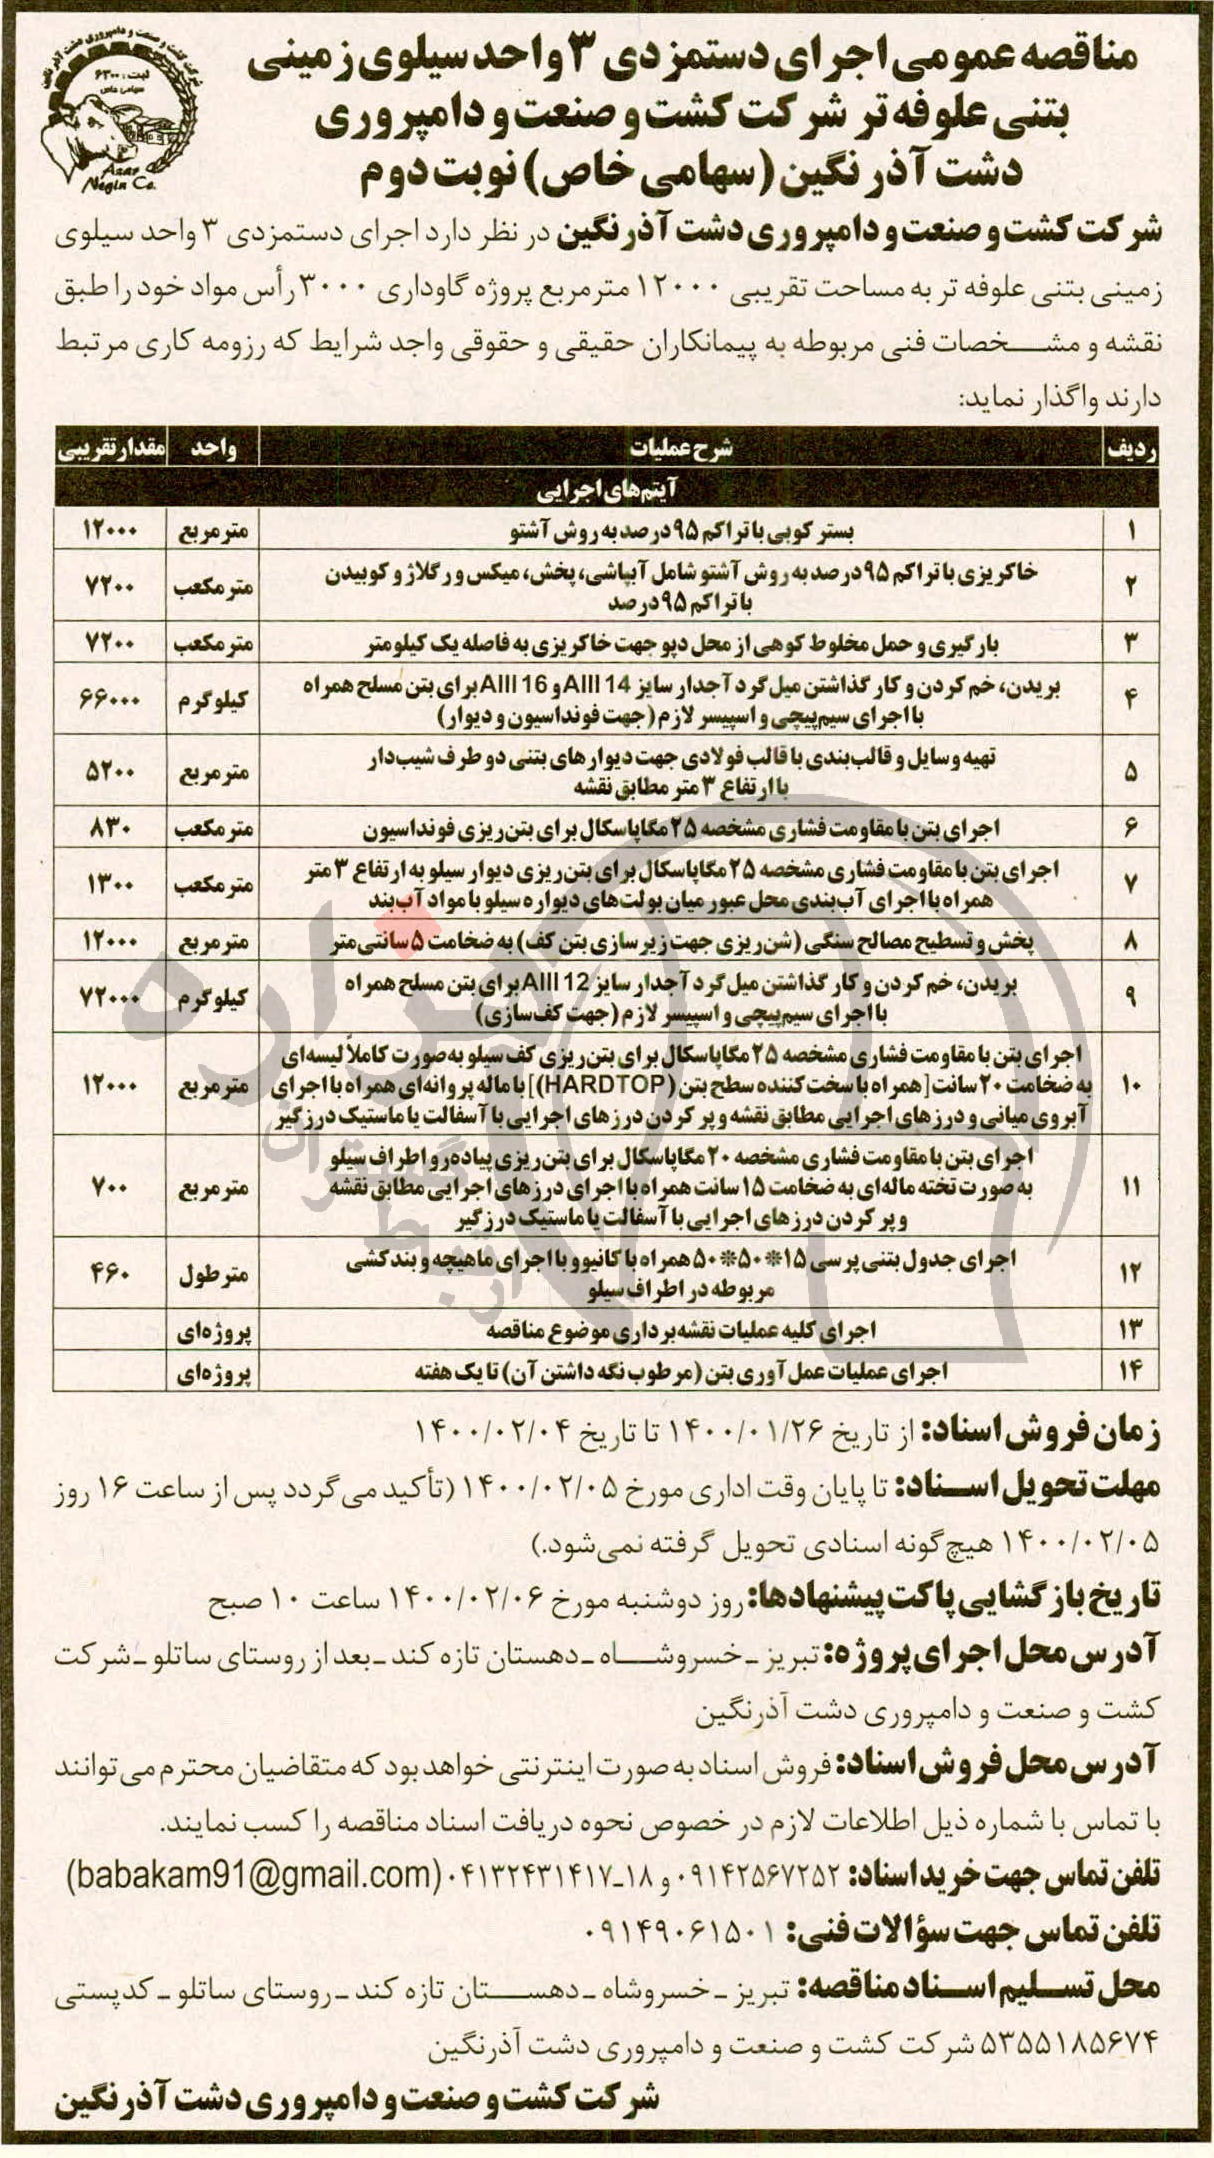 ثبت: ۶۳۰۰
سهامی خاص
Azar
Negin Co.
مناقصه عمومی اجرای دستمزدی ۳ واحد سیلوی زمینی
بتنی علوفه تر شرکت کشت و صنعت و دامپروری
دشت آذر نگین (سهامی خاص) نوبت دوم
شرکت کشت و صنعت و دامپروری دشت آذرنگین در نظر دارد اجرای دستمزدی ۳ واحد سیلوی
زمینی بتنی علوفه تر به مساحت تقریبی ۱۲۰۰۰ مترمربع پروژه گاوداری ۳۰۰۰ رأس مواد خود را طبق
نقشه و مشخصات فنی مربوطه به پیمانکاران حقیقی و حقوقی واجد شرایط که رزومه کاری مرتبط
دارند واگذار نماید:
ردیف شرح عملیات واحد مقدار تقریبی
آیتم‌های اجرایی
۱ بستر کوبی با تراکم ۹۵ درصد به روش آشتو مترمربع ۱۲۰۰۰
۲ خاکریزی با تراکم ۹۵ درصد به روش آشتو شامل آبپاشی، پخش، میکس و رگلاژ و کوبیدن
با تراکم ۹۵ درصد مترمکعب ۷۲۰۰
۳ بارگیری و حمل مخلوط کوهی از محل دپو جهت خاکریزی به فاصله یک کیلومتر مترمکعب ۷۲۰۰
۴ بریدن، خم کردن و کار گذاشتن میل‌گرد آجدار سایز AIII 14 و AIII 16 برای بتن مسلح همراه
با اجرای سیم‌پیچی و اسپیسر لازم (جهت فونداسیون و دیوار) کیلوگرم ۶۶۰۰۰
۵ تهیه وسایل و قالب‌بندی با قالب فولادی جهت دیوارهای بتنی دو طرف شیب‌دار
با ارتفاع ۳ متر مطابق نقشه مترمربع ۵۲۰۰
۶ اجرای بتن با مقاومت فشاری مشخصه ۲۵ مگاپاسکال برای بتن‌ریزی فونداسیون مترمکعب ۸۳۰
۷ اجرای بتن با مقاومت فشاری مشخصه ۲۵ مگاپاسکال برای بتن‌ریزی دیوار سیلو به ارتفاع ۳ متر
همراه با اجرای آب‌بندی محل عبور میان بولت‌های دیواره سیلو با مواد آب‌بند مترمکعب ۱۳۰۰
۸ پخش و تسطیح مصالح سنگی (شن‌ریزی جهت زیرسازی بتن کف) به ضخامت ۵ سانتی‌متر مترمربع ۱۲۰۰۰
۹ بریدن، خم کردن و کار گذاشتن میل‌گرد آجدار سایز AIII 12 برای بتن مسلح همراه
با اجرای سیم‌پیچی و اسپیسر لازم (جهت کف‌سازی) کیلوگرم ۷۲۰۰۰
۱۰ اجرای بتن با مقاومت فشاری مشخصه ۲۵ مگاپاسکال برای بتن‌ریزی کف سیلو به صورت کاملاً لیسه‌ای
به ضخامت ۲۰ سانت [همراه با سخت کننده سطح بتن (HARDTOP)] با ماله پروانه‌ای همراه با اجرای
آبروی میانی و درزهای اجرایی مطابق نقشه و پر کردن درزهای اجرایی با آسفالت یا ماستیک درزگیر مترمربع ۱۲۰۰۰
۱۱ اجرای بتن با مقاومت فشاری مشخصه ۲۰ مگاپاسکال برای بتن‌ریزی پیاده‌رو اطراف سیلو
به صورت تخته ماله‌ای به ضخامت ۱۵ سانت همراه با اجرای درزهای اجرایی مطابق نقشه
و پر کردن درزهای اجرایی با آسفالت یا ماستیک درزگیر مترمربع ۷۰۰
۱۲ اجرای جدول بتنی پرسی ۱۵*۵۰*۵۰ همراه با کانیوو با اجرای ماهیچه و بندکشی
مربوطه در اطراف سیلو مترطول ۴۶۰
۱۳ اجرای کلیه عملیات نقشه‌برداری موضوع مناقصه پروژه‌ای
۱۴ اجرای عملیات عمل آوری بتن (مرطوب نگه داشتن آن) تا یک هفته پروژه‌ای
زمان فروش اسناد: از تاریخ ۱۴۰۰/۰۱/۲۶ تا تاریخ ۱۴۰۰/۰۲/۰۴
مهلت تحویل اسناد: تا پایان وقت اداری مورخ ۱۴۰۰/۰۲/۰۵ (تأکید می‌گردد پس از ساعت ۱۶ روز
۱۴۰۰/۰۲/۰۵ هیچ‌گونه اسنادی تحویل گرفته نمی‌شود.)
تاریخ بازگشایی پاکت پیشنهادها: روز دوشنبه مورخ ۱۴۰۰/۰۲/۰۶ ساعت ۱۰ صبح
آدرس محل اجرای پروژه: تبریز ـ خسروشاه ـ دهستان تازه کند ـ بعد از روستای ساتلو ـ شرکت
کشت و صنعت و دامپروری دشت آذرنگین
آدرس محل فروش اسناد: فروش اسناد به صورت اینترنتی خواهد بود که متقاضیان محترم می‌توانند
با تماس با شماره ذیل اطلاعات لازم در خصوص نحوه دریافت اسناد مناقصه را کسب نمایند.
تلفن تماس جهت خرید اسناد: ۰۹۱۴۲۵۶۷۲۵۲ و ۱۸ـ۰۴۱۳۲۴۳۱۴۱۷ (babakam91@gmail.com)
تلفن تماس جهت سؤالات فنی: ۰۹۱۴۹۰۶۱۵۰۱
محل تسلیم اسناد مناقصه: تبریز ـ خسروشاه ـ دهستان تازه کند ـ روستای ساتلو ـ کدپستی
۵۳۵۵۱۸۵۶۷۴ شرکت کشت و صنعت و دامپروری دشت آذرنگین
شرکت کشت و صنعت و دامپروری دشت آذرنگین